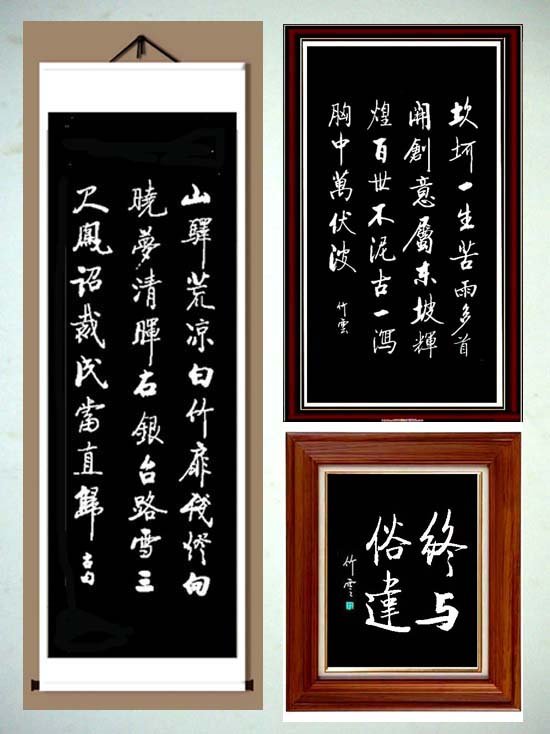 山驛荒凉白竹扉殘燈向
曉夢清暉右銀台路雪三
尺鳳詔裁成當直歸
坎坷一生苦雨多首
開創意屬东坡輝
煌百世不泥古一瀉
胸中萬伏波
竹雲
終与
俗違
竹雲